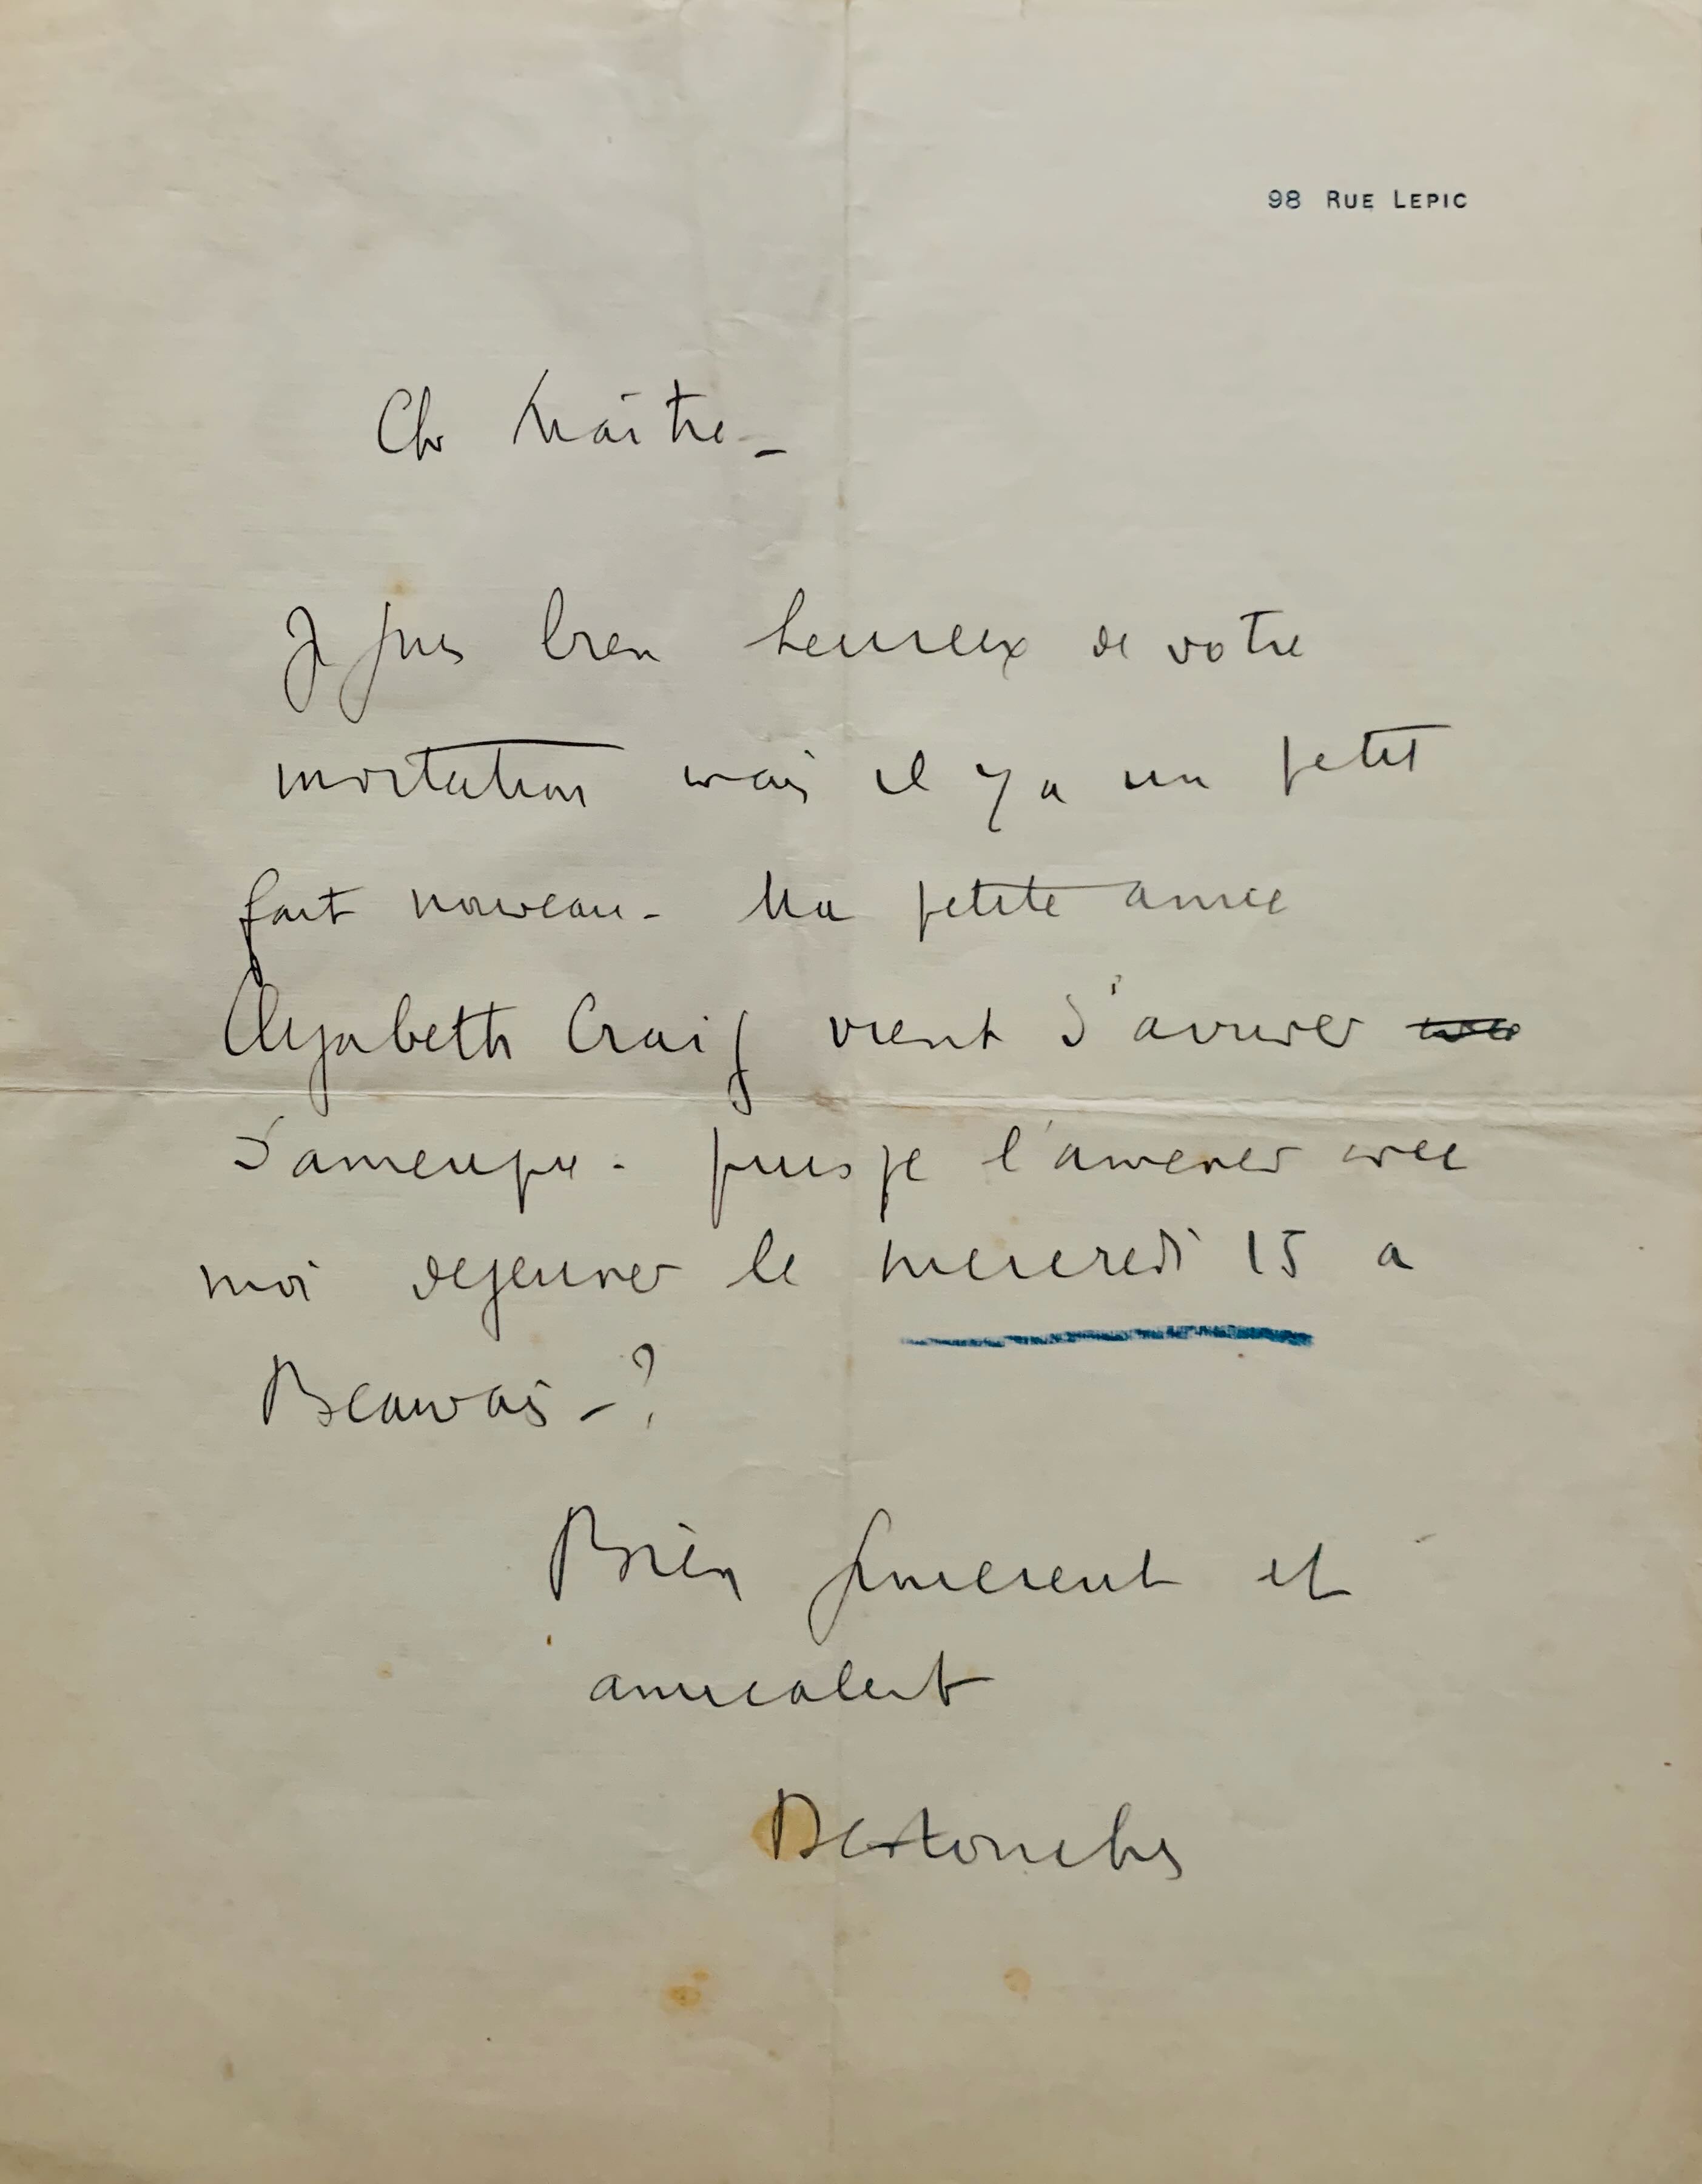 98 RUE LEPIC
Ch Maître -
Je suis bien heureux de votre
invitation mais il y a un petit
fait nouveau - Ma petite amie
Elizabeth Craig vient d'arriver
d'amerique - puis je l'amener avec
moi dejeuner le mercredi 15 a
Beauvais - ?
Bien sincerement et
amicalent
Destouches